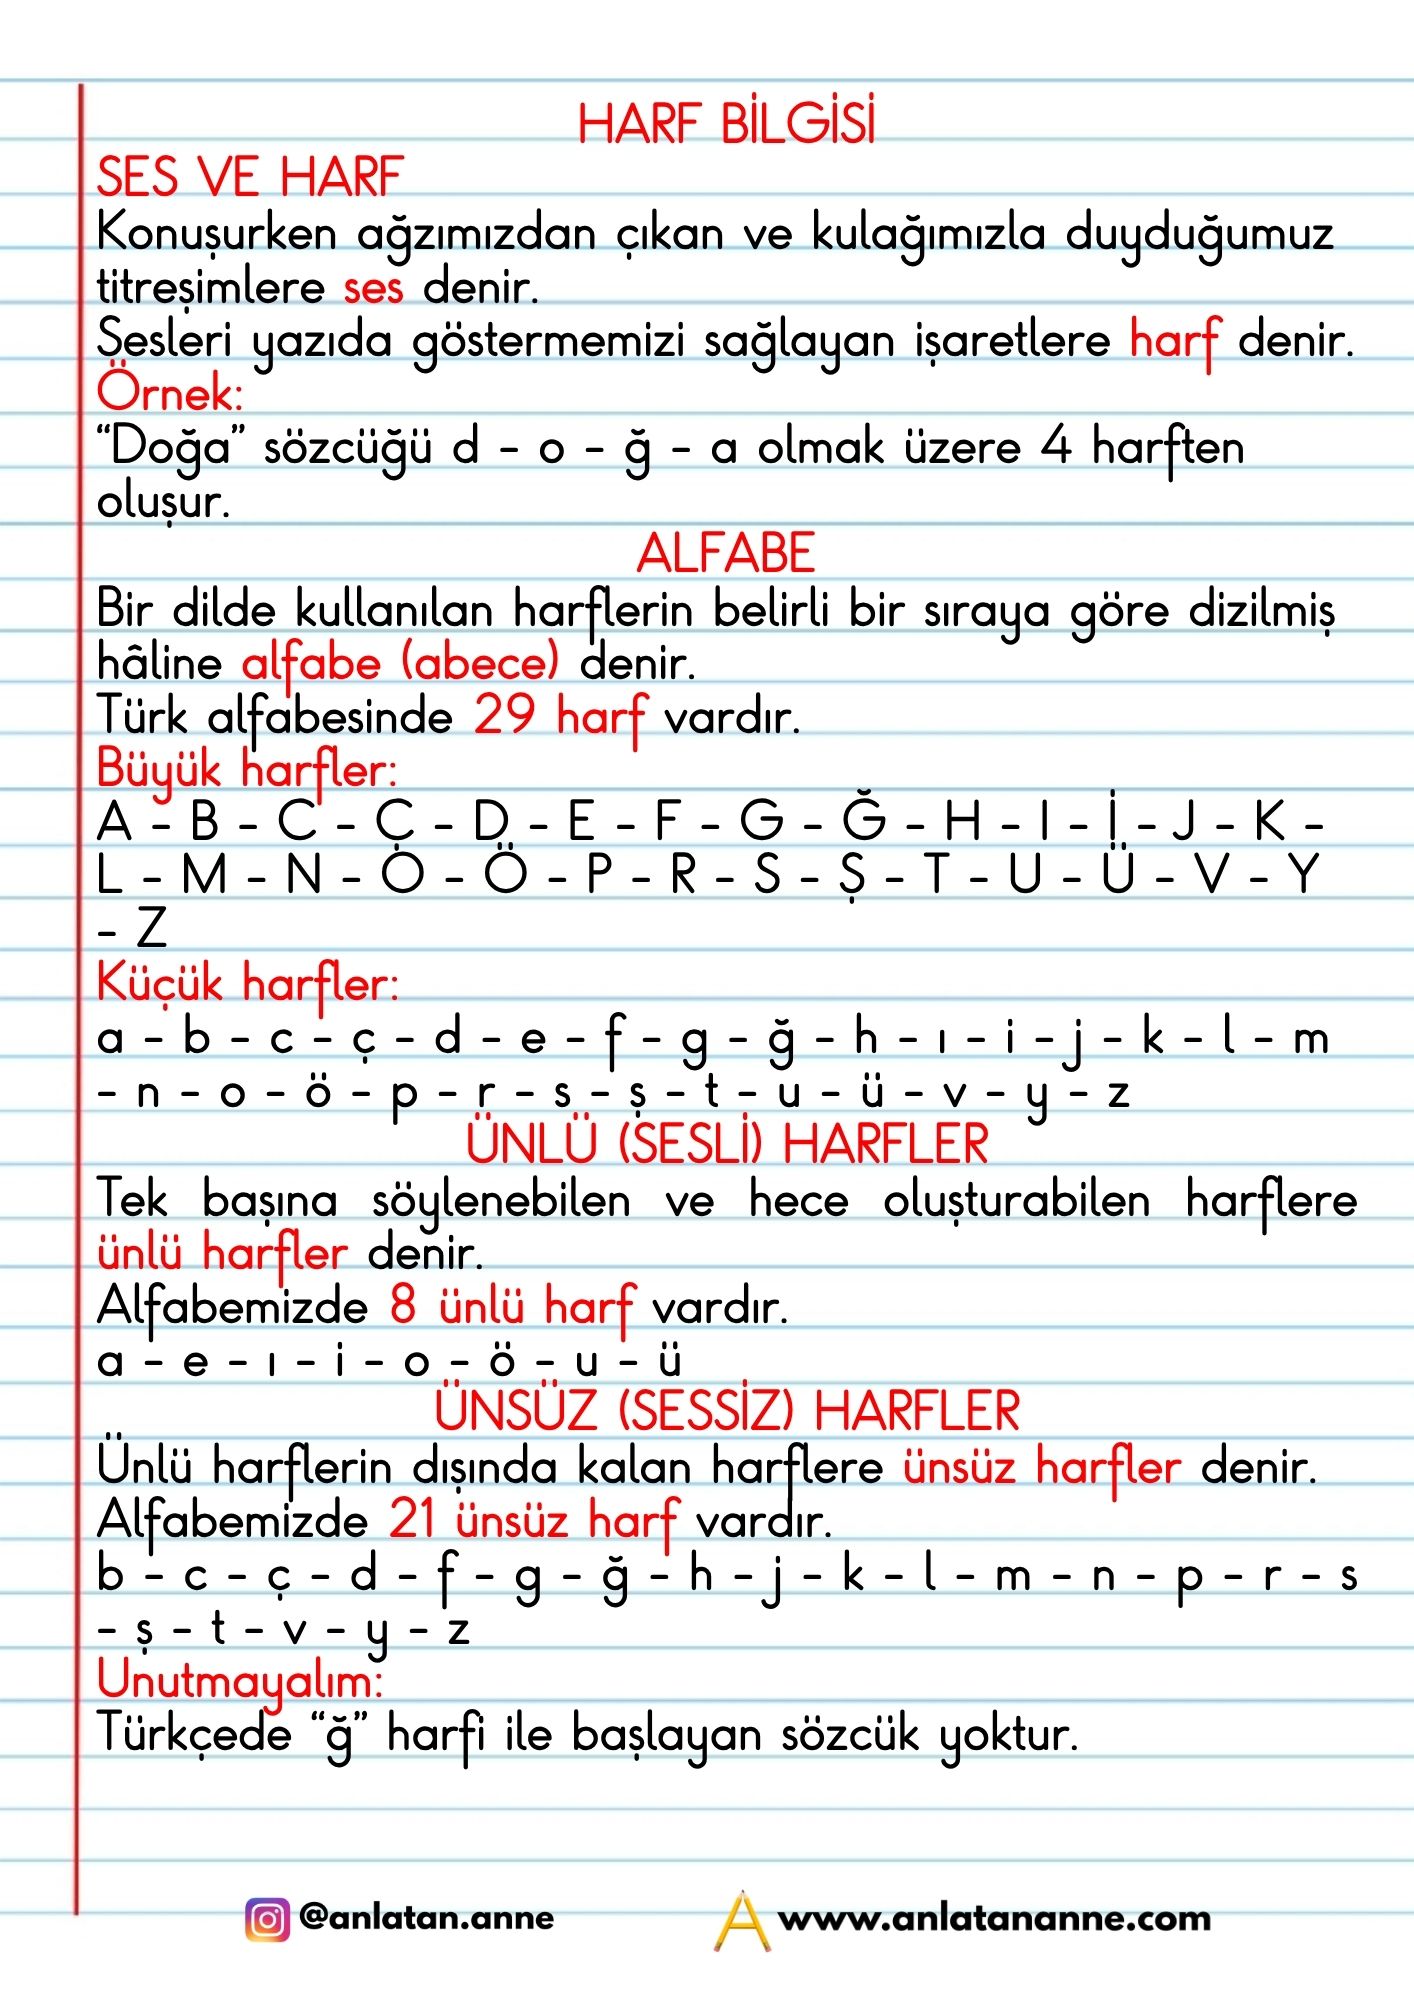 HARF BİLGİSİ
SES VE HARF
Konuşurken ağzımızdan çıkan ve kulağımızla duyduğumuz
titreşimlere ses denir.
Sesleri yazıda göstermemizi sağlayan işaretlere harf denir.
Örnek:
“Doğa” sözcüğü d - o - ğ - a olmak üzere 4 harften
oluşur.
ALFABE
Bir dilde kullanılan harflerin belirli bir sıraya göre dizilmiş
hâline alfabe (abece) denir.
Türk alfabesinde 29 harf vardır.
Büyük harfler:
A - B - C - Ç - D - E - F - G - Ğ - H - I - İ - J - K -
L - M - N - O - Ö - P - R - S - Ş - T - U - Ü - V - Y
- Z
Küçük harfler:
a - b - c - ç - d - e - f - g - ğ - h - ı - i - j - k - l - m
- n - o - ö - p - r - s - ş - t - u - ü - v - y - z
ÜNLÜ (SESLİ) HARFLER
Tek başına söylenebilen ve hece oluşturabilen harflere
ünlü harfler denir.
Alfabemizde 8 ünlü harf vardır.
a - e - ı - i - o - ö - u - ü
ÜNSÜZ (SESSİZ) HARFLER
Ünlü harflerin dışında kalan harflere ünsüz harfler denir.
Alfabemizde 21 ünsüz harf vardır.
b - c - ç - d - f - g - ğ - h - j - k - l - m - n - p - r - s
- ş - t - v - y - z
Unutmayalım:
Türkçede “ğ” harfi ile başlayan sözcük yoktur.
@anlatan.anne
www.anlatananne.com